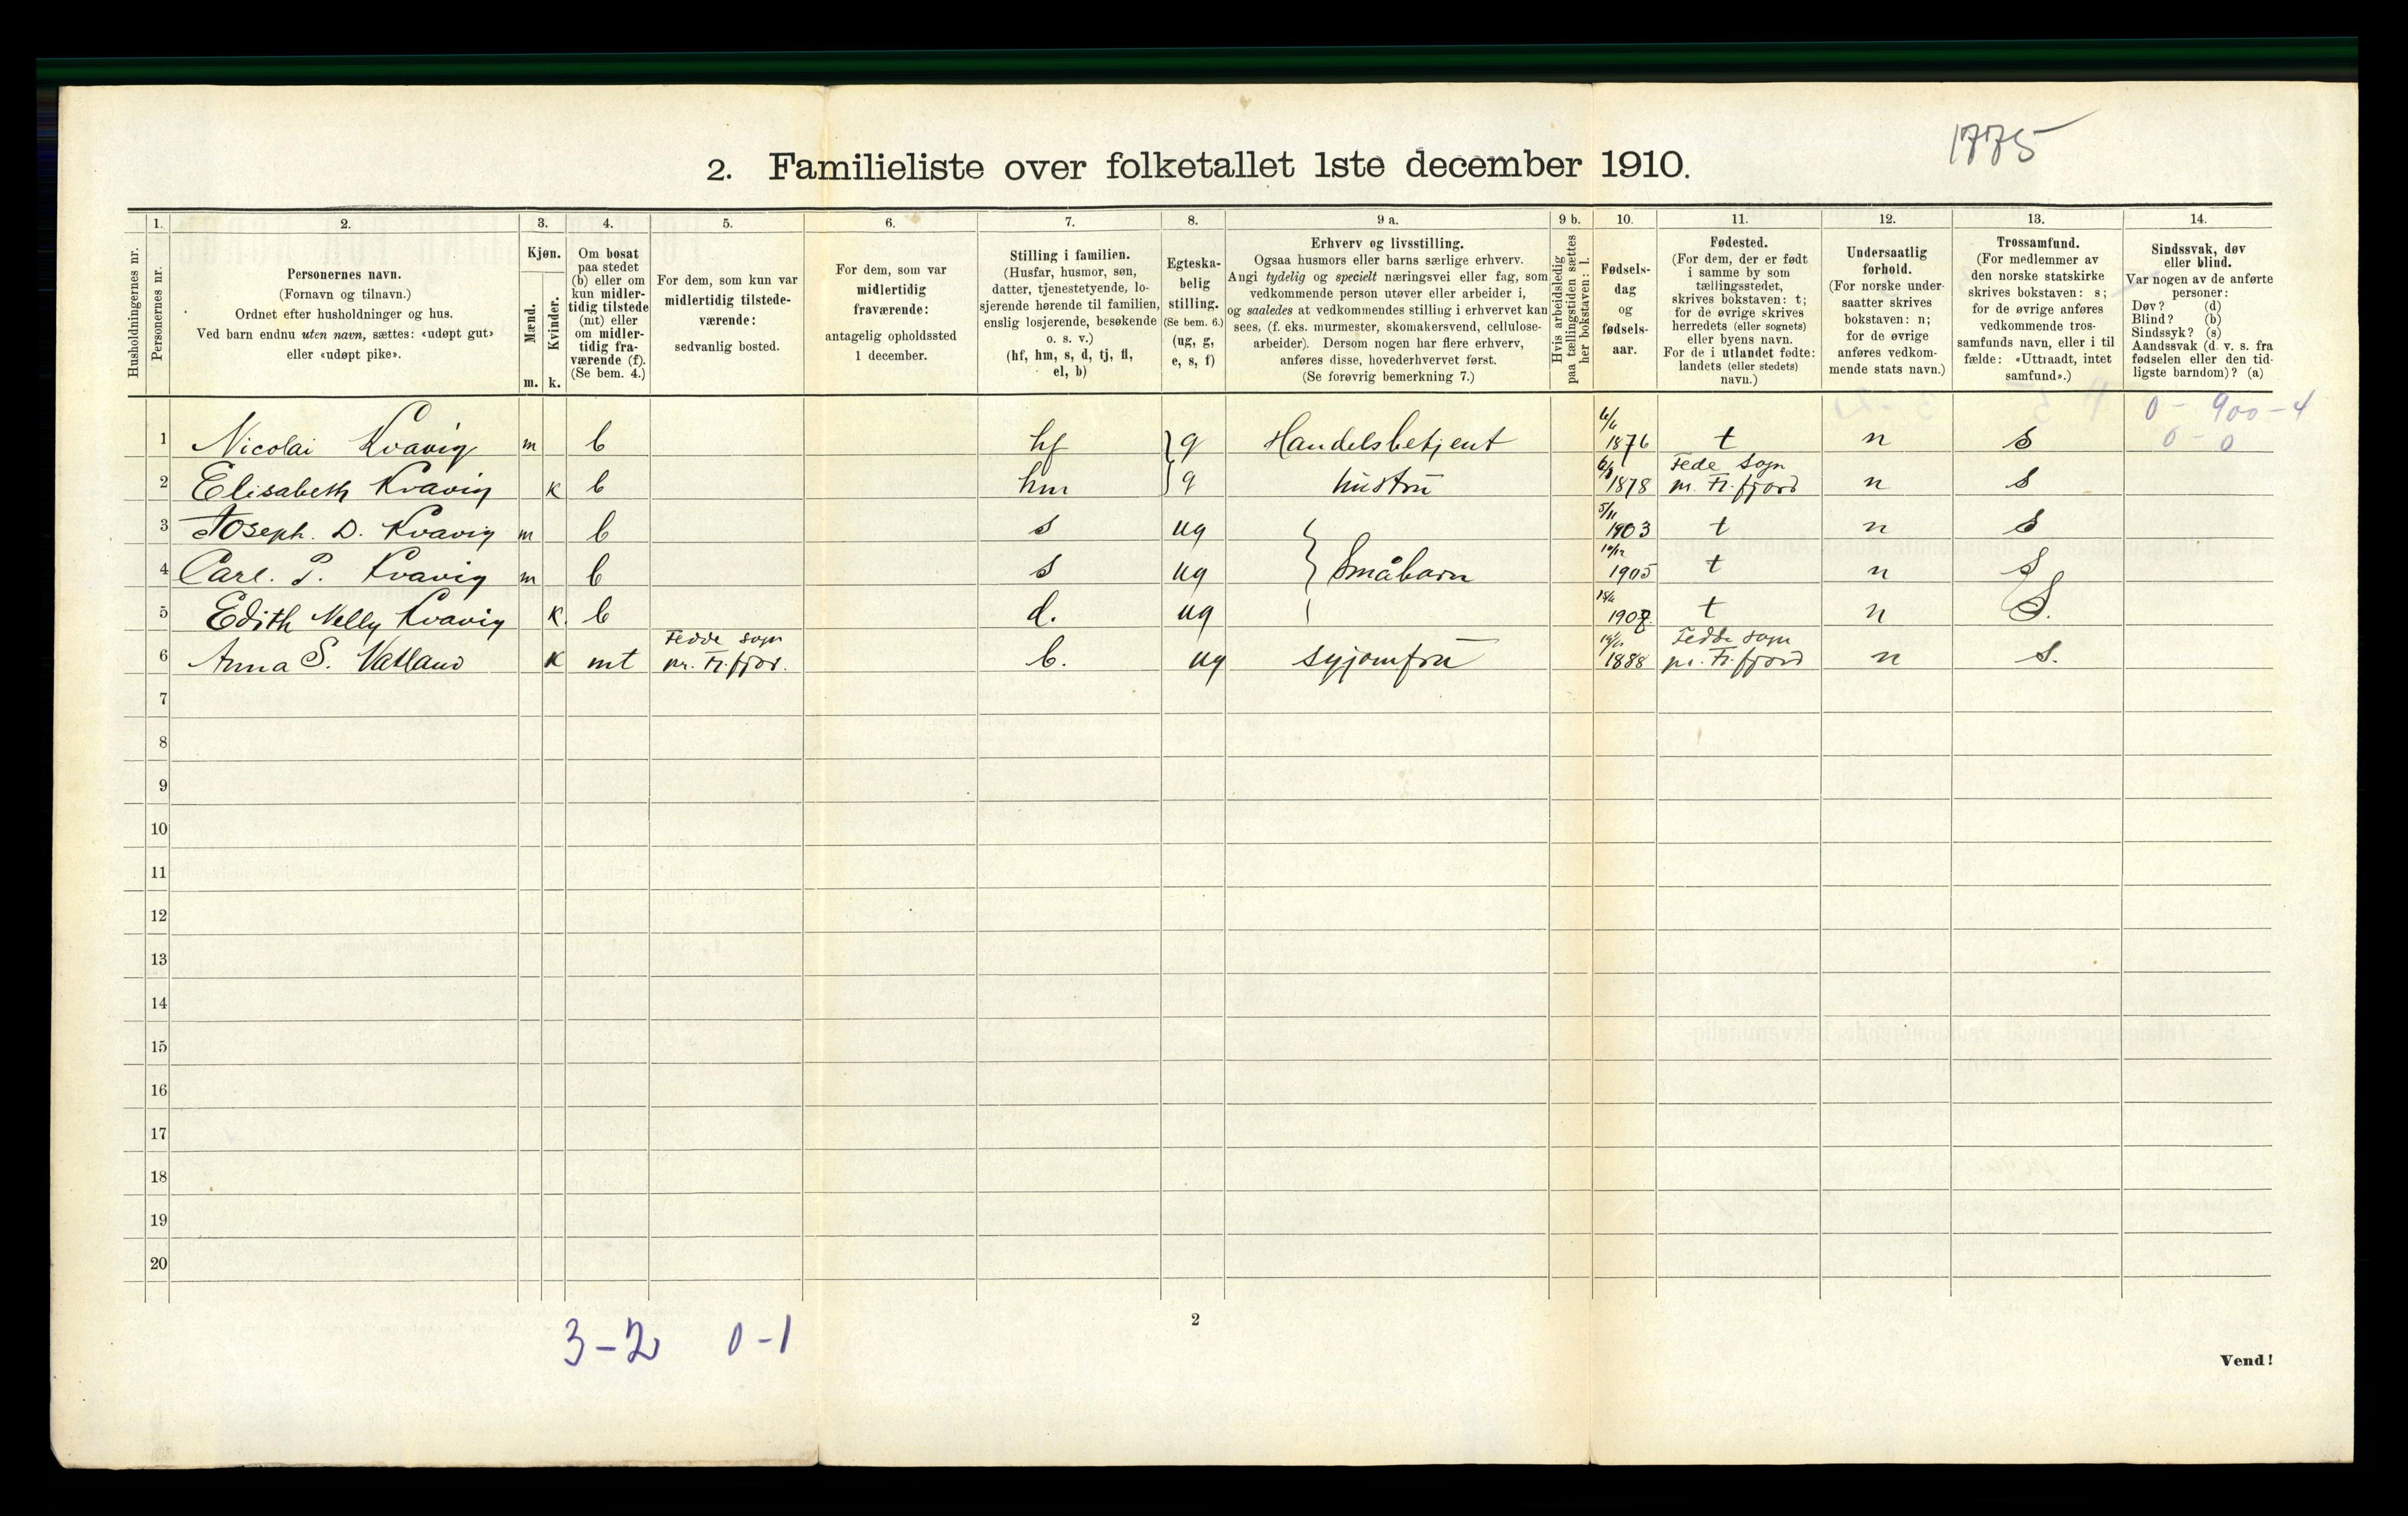 1775
2. Familieliste over folketallet 1ste december 1910.
1. 2. 3. 4. 5. 6. 7. 8. 9 a. 9 b. 10. 11. 12. 13. 14.
Husholdningernes nr.
Personernes nr.
Personernes navn.
(Fornavn og tilnavn.)
Ordnet efter husholdninger og hus.
Ved barn endnu uten navn, sættes: «udøpt gut»
eller «udøpt pike».
Kjøn.
Mænd.
Kvinder.
m. k.
Om bosat
paa stedet
(b) eller om
kun midler-
tidig tilstede
(mt) eller
om midler-
tidig fra-
værende (f).
(Se bem. 4.)
For dem, som kun var
midlertidig tilstede-
værende:
sedvanlig bosted.
For dem, som var
midlertidig
fraværende:
antagelig opholdssted
1 december.
Stilling i familien.
(Husfar, husmor, søn,
datter, tjenestetyende, lo-
sjerende hørende til familien,
enslig losjerende, besøkende
o. s. v.)
(hf, hm, s, d, tj, fl,
el, b)
Egteska-
belig
stilling.
(Se bem. 6.)
(ug, g,
e, s, f)
Erhverv og livsstilling.
Ogsaa husmors eller barns særlige erhverv.
Angi tydelig og specielt næringsvei eller fag, som
vedkommende person utøver eller arbeider i,
og saaledes at vedkommendes stilling i erhvervet kan
sees, (f. eks. murmester, skomakersvend, cellulose-
arbeider). Dersom nogen har flere erhverv,
anføres disse, hovederhvervet først.
(Se forøvrig bemerkning 7.)
Hvis arbeidsledig
paa tællingstiden sættes
her bokstaven: l.
Fødsels-
dag
og
fødsels-
aar.
Fødested.
(For dem, der er født
i samme by som
tællingsstedet,
skrives bokstaven: t;
for de øvrige skrives
herredets (eller sognets)
eller byens navn.
For de i utlandet fødte:
landets (eller stedets)
navn.)
Undersaatlig
forhold.
(For norske under-
saatter skrives
bokstaven: n;
for de øvrige
anføres vedkom-
mende stats navn.)
Trossamfund.
(For medlemmer av
den norske statskirke
skrives bokstaven: s;
for de øvrige anføres
vedkommende tros-
samfunds navn, eller i til
fælde: «Uttraadt, intet
samfund».)
Sindssvak, døv
eller blind.
Var nogen av de anførte
personer:
Døv? (d)
Blind? (b)
Sindssyk? (s)
Aandssvak (d. v. s. fra
fødselen eller den tid-
ligste barndom)? (a)
0 - 900 - 4
0 - 0
1 Nicolai Kvavig m b hf g Handelsbetjent 1876 t n s
Fede Sogn
2 Elisabeth Kvavig k b hm g hustru 1878 pr. Fl. fjord n s
3 Joseph. D. Kvavig m b s ug 5/11 1903 t n s
4 Carl. P. Kvavig m b s ug Småbarn 1905 t n s
5 Edith Nelly Kvavig k. b d. ug 1907 t n S.
Fedde sogn Fedde sogn
6 Anna S. Vatland k mt pr. Fl. fjor. b. ug syjomfru 1888 pr. Fl. fjord n s.
7
8
9
10
11
12
13
14
15
16
17
18
19
20
3-2 0-1
2
Vend!